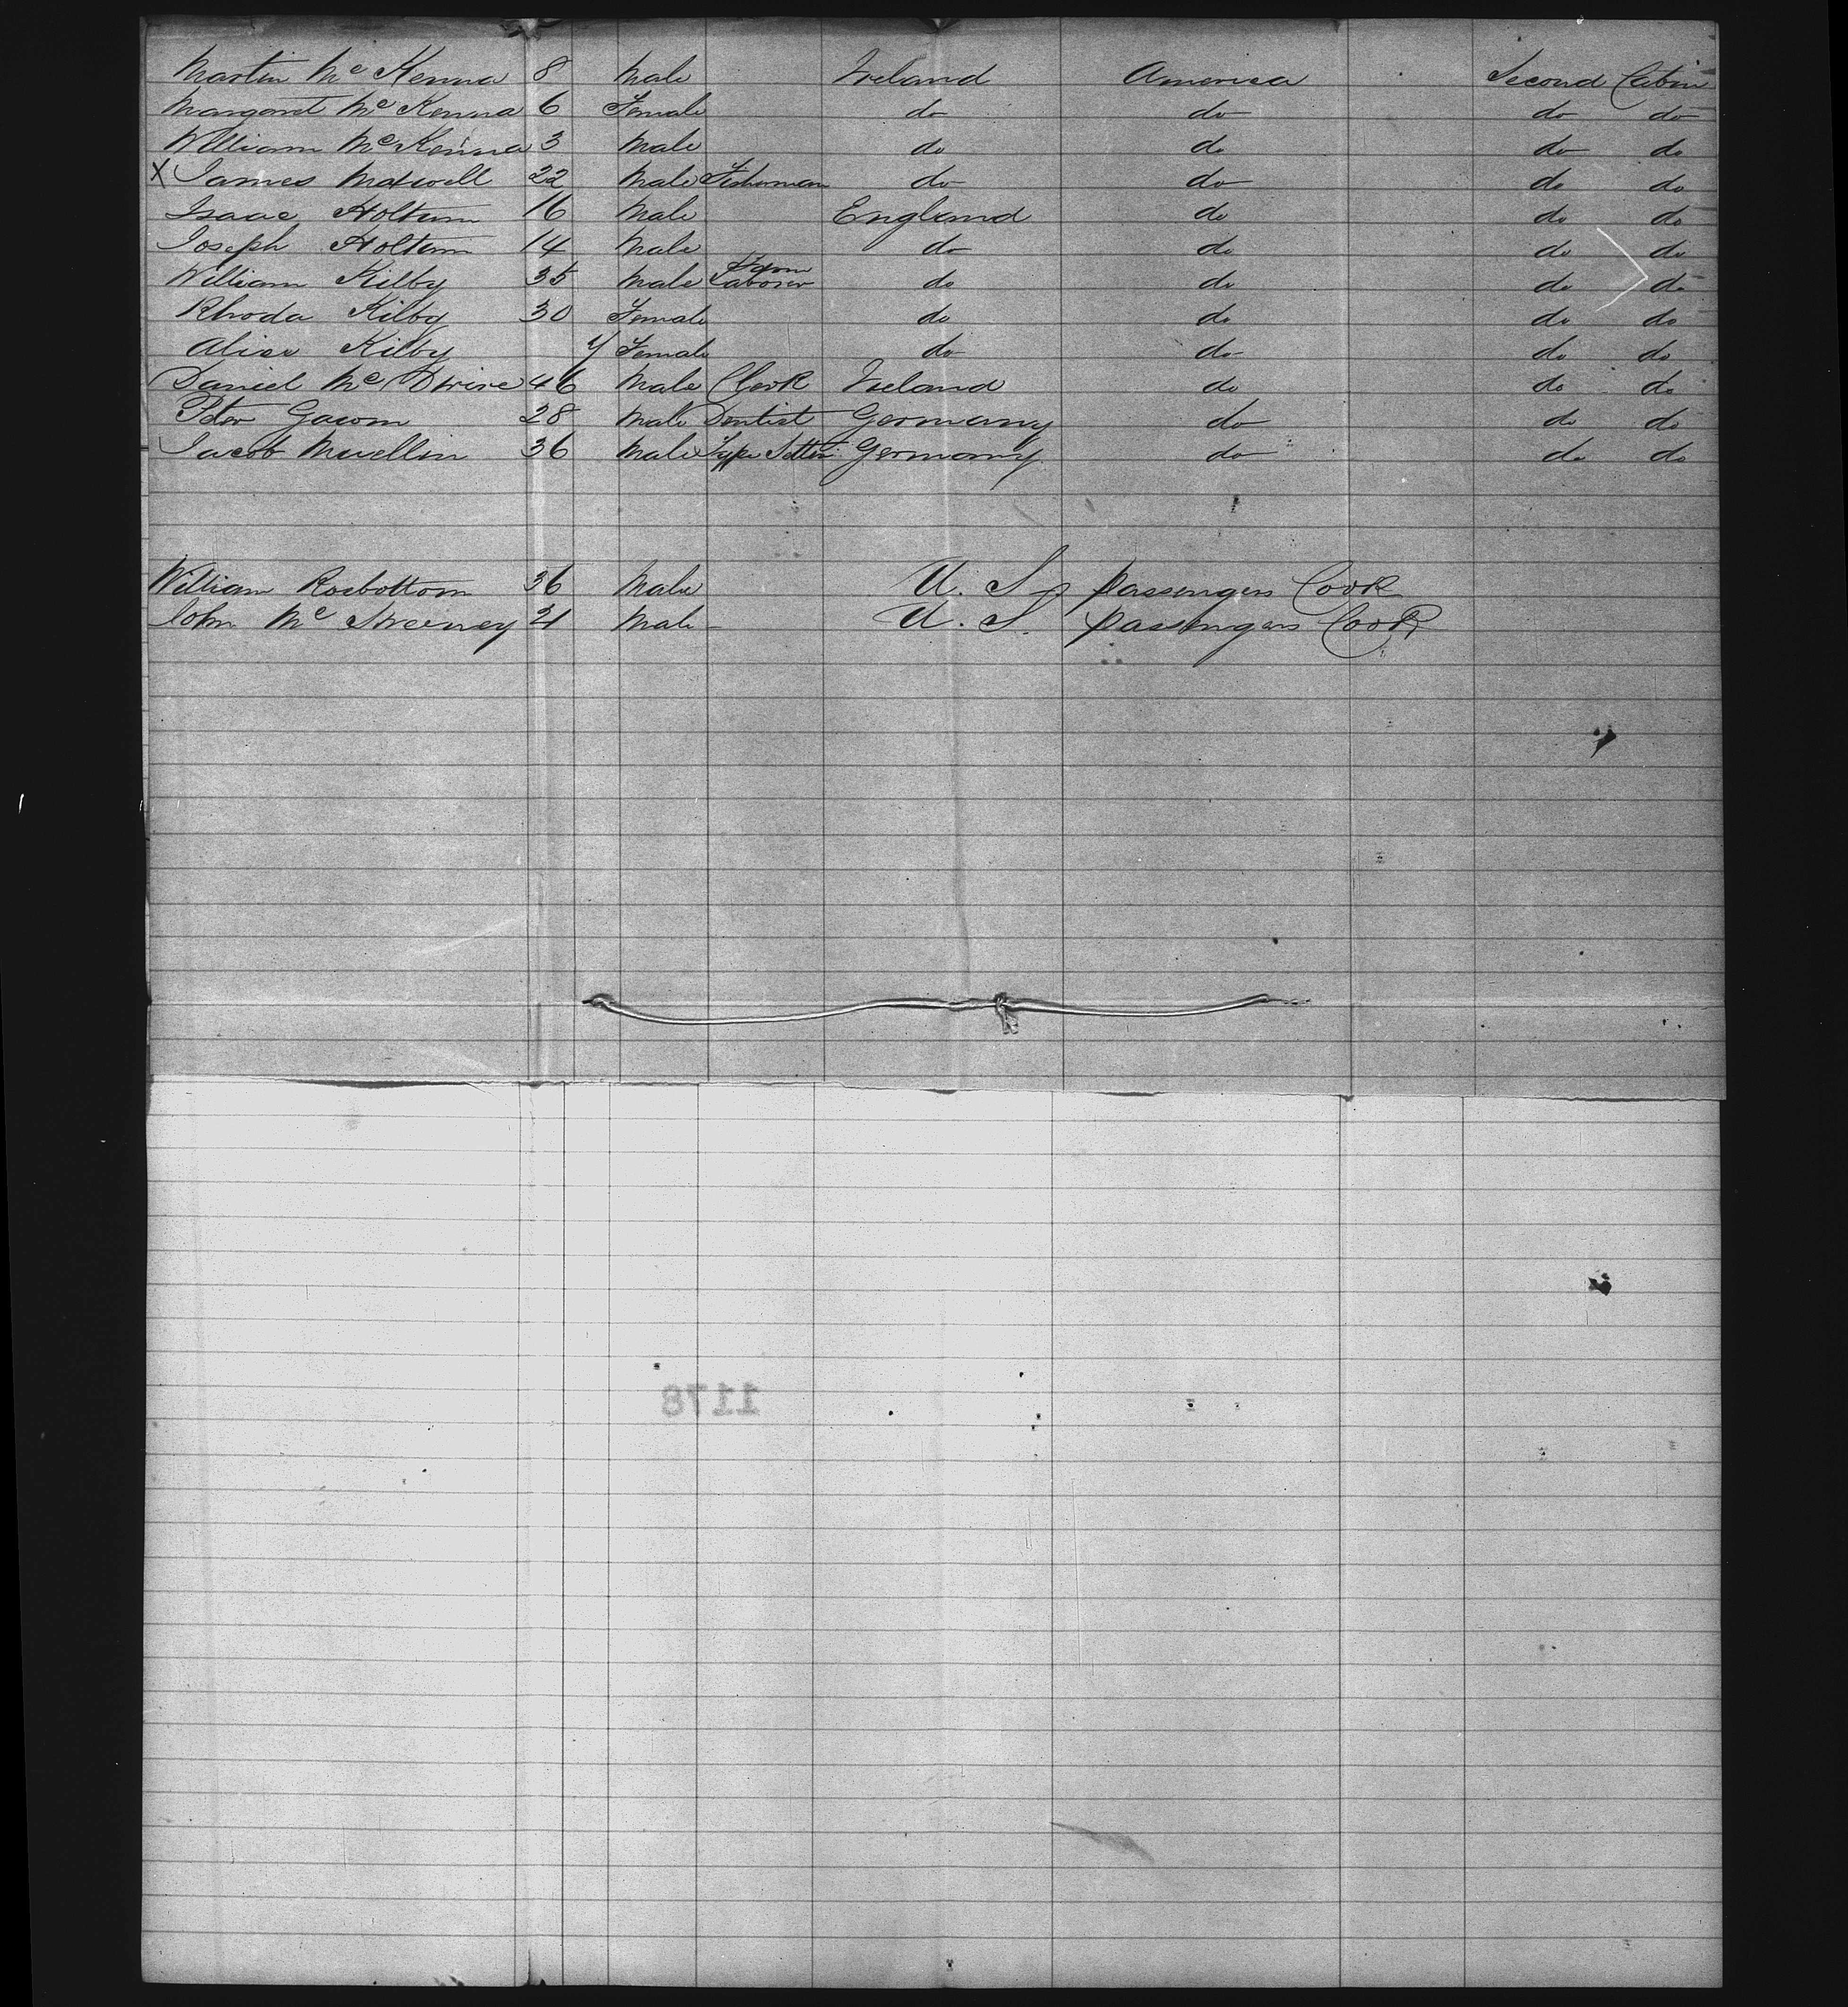 Martin Mc Kenna 8 Male Ireland America Second Cabin
Margaret Mc Kenna 6 Female do do do do
William Mc Kenna 3 Male do do do do
X James Maxwell 22 Male Fisherman do do do do
Isaac Holtum 16 Male England do do do
Joseph Holtum 14 Male do do do do
William Kilby 35 Male Farm Laborer do do do do
Rhoda Kilby 30 Female do do do do
Alice Kilby Female do do do do
Daniel Mc 46 Male Clerk Ireland do do do
Peter 28 Male Dentist Germany do do do
Jacob 36 Male Type Setter Germany do do do
William Rosbottom 36 Male U. S. passengers Cook
John Mc Sweeney 21 Male U. S. passengers Cook
1178